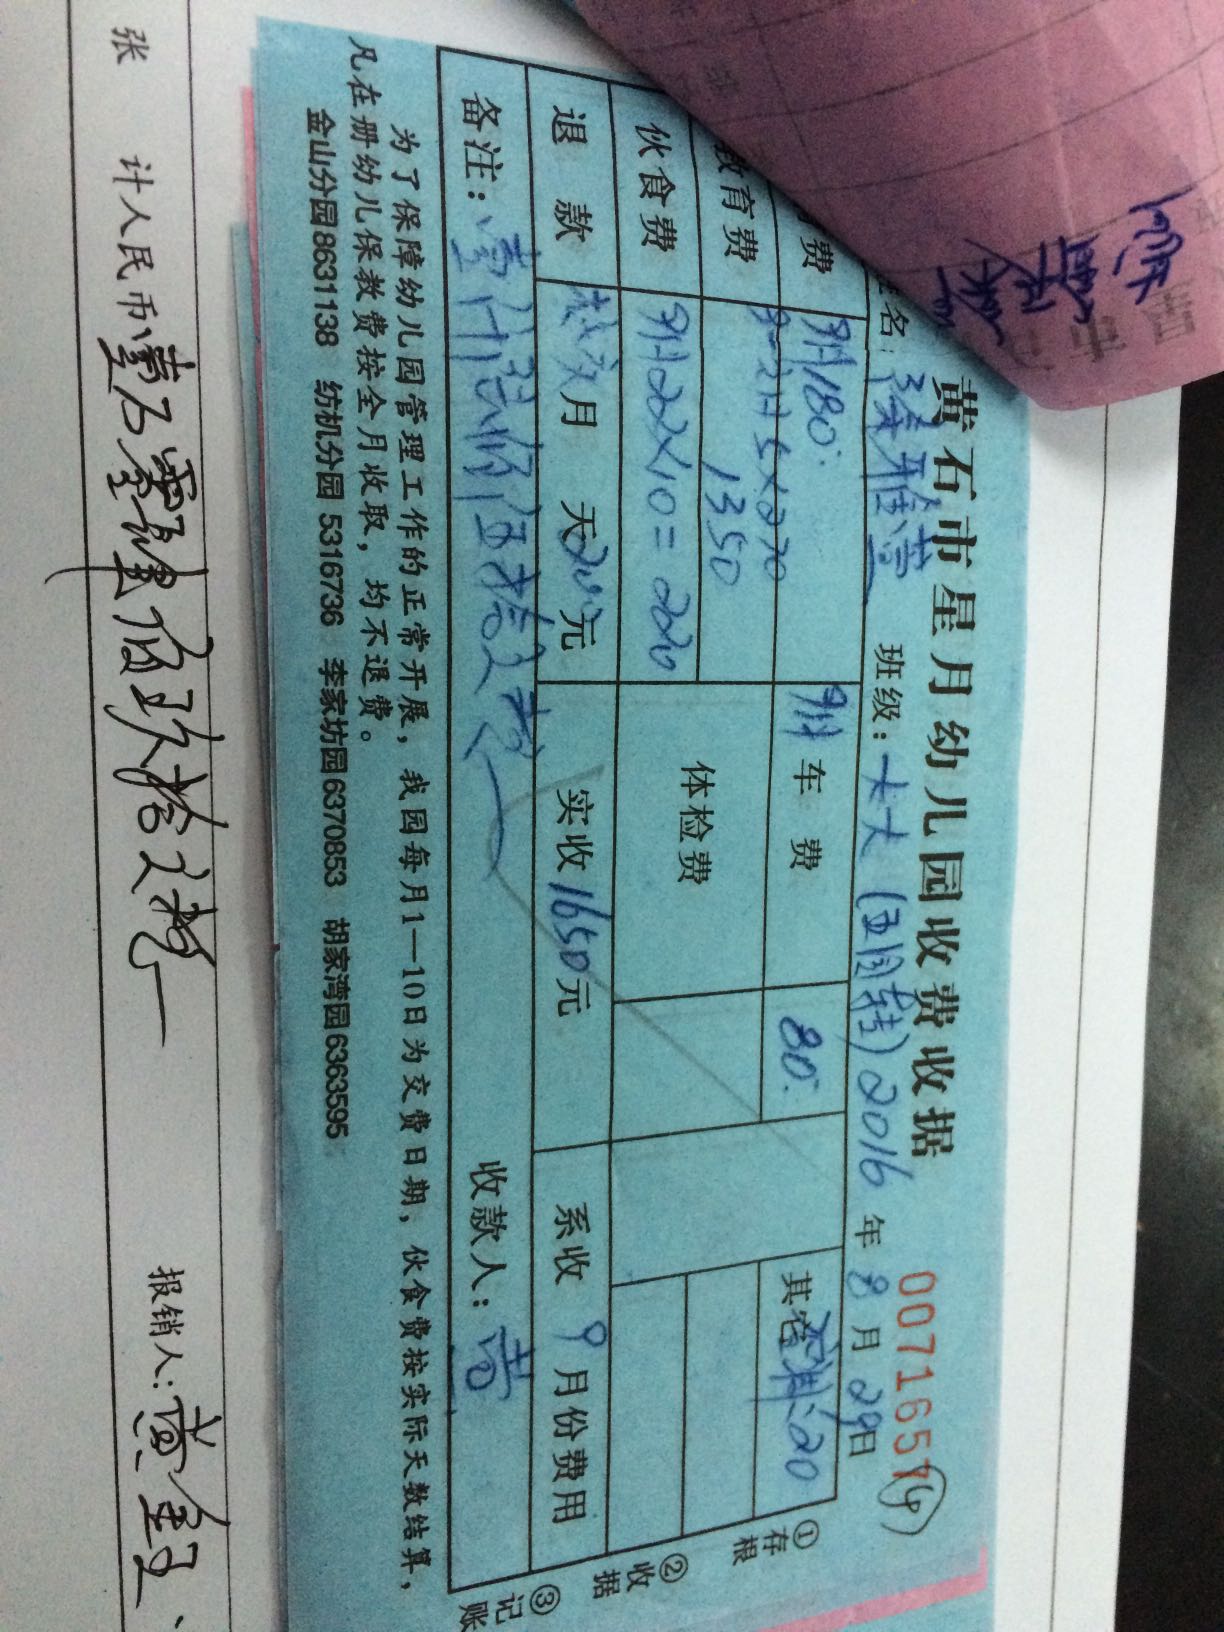 黄石市星月幼儿园收费收据
00716657
名: 徐雅萱 班级: 大大 2016 年 8 月 29日
费 9月180. 9月 车费 80. 其它 20
教育费 5×270 1350
伙食费 9月22×10=220 体检费
退款 月 天 元 实收 1650元 系收 9 月份费用
备注: 壹仟陆佰伍拾元整 收款人: 黄
为了保障幼儿园管理工作的正常开展，我园每月1—10日为交费日期，伙食费按实际天数结算，
凡在册幼儿保教费按全月收取，均不退费。
金山分园8631138 纺机分园 5316736 李家坊园6370853 胡家湾园6363595
①存根
②收据
③记账
张 计人民币 佰玖拾元整 报销人: 黄